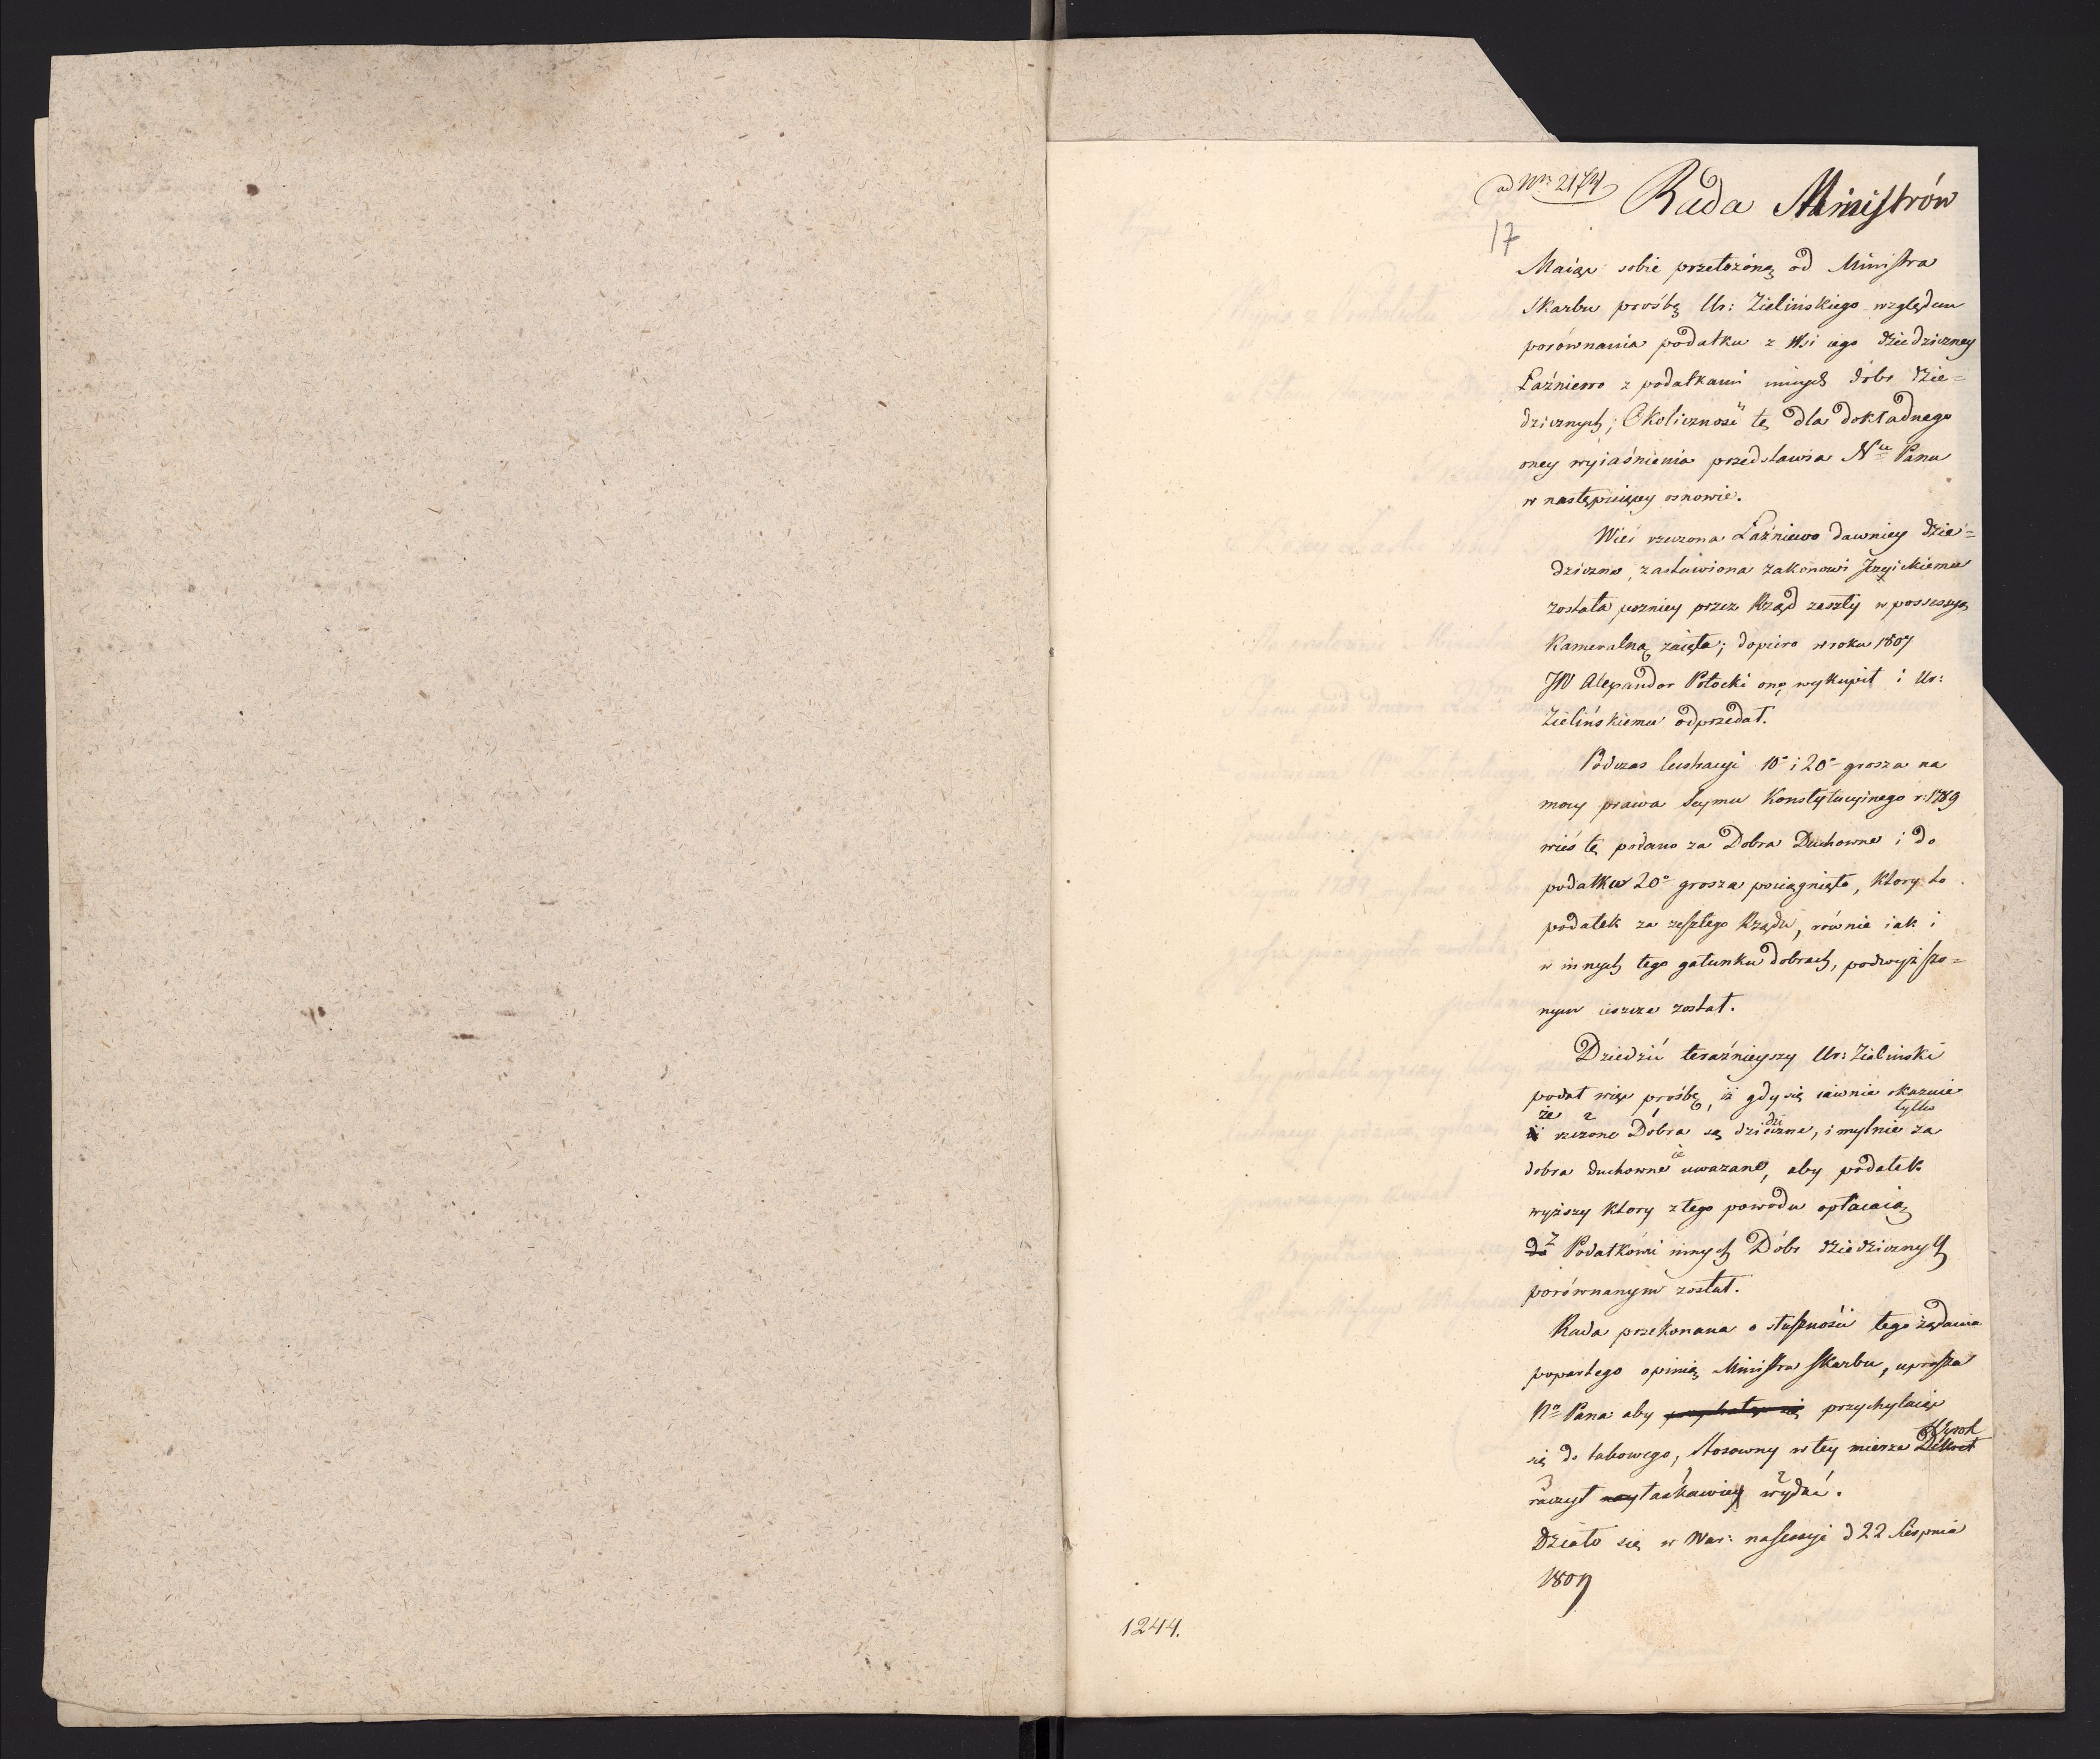 ad Nrm 2174
Rada Ministrów
17
Maiąc sobie przełożoną od Ministra
Skarbu prośbę Ur: Zielińskiego względem
porównania podatku z Wsi iego dziedziczney
Łaźniewo z podatkami innych dóbr dzie=
dzicznych; Okoliczność tę dla dokładnego
oney wyiaśnienia przedstawia Nu Panu
w następuiącey osnowie.
Wieś rzeczona Łaźniewo dawniey dzie=
dziczna, zastawiona zakonowi Jezuickiemu
została pozniey przez Rząd zaszły w possessyą
Kameralną zaięta; dopiero w roku 1807
JW Alexander Potocki onę wykupił i Ur:
Zielińskiemu odprzedał.
Podczas lustracyi 10o i 20o grosza na
mocy prawa Seymu Konstytucyinego r: 1789
wieś tę podano za Dobra Duchowne i do
podatku 20o grosza pociągnięto, ktory to
podatek za zeszłego Rządu, równie iak i
w innych tego gatunku dobrach, podwyższo=
nym ieszcze został.
Dziedzic teraźnieyszy Ur: Zieliński
podał więc prośbę, iż gdy się iawnie okazuie
że 2 1 tylko
iż rzeczone Dobra są dziedziczne, i mylnie za
dobra duchowne uwazane, aby podatek
wyższy ktory z tego powodu opłacaią
do z Podatkami innych Dóbr dziedzicznych
porównanym został.
Rada przekonana o słuszności tego żądania
popartego opinią Ministra Skarbu, uprasza
No Pana aby przychylaiąc
się do takowego, stosowny w tey mierze Dekret Wyrok
raczył nayłaskawiey wydać.
Działo się w War: na Sessyi d 22 Sierpnia
1809
1244.